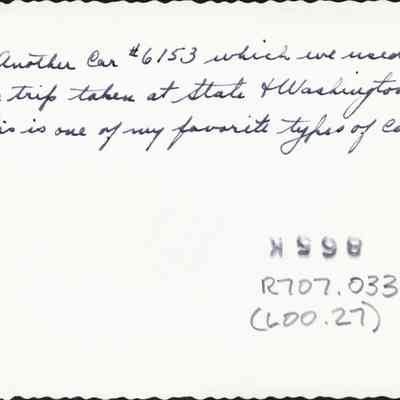 Another Car #6153 which we used
trip taken at State & Washington
is is one of my favorite types of Ca
865K
R707.033
(600.27)